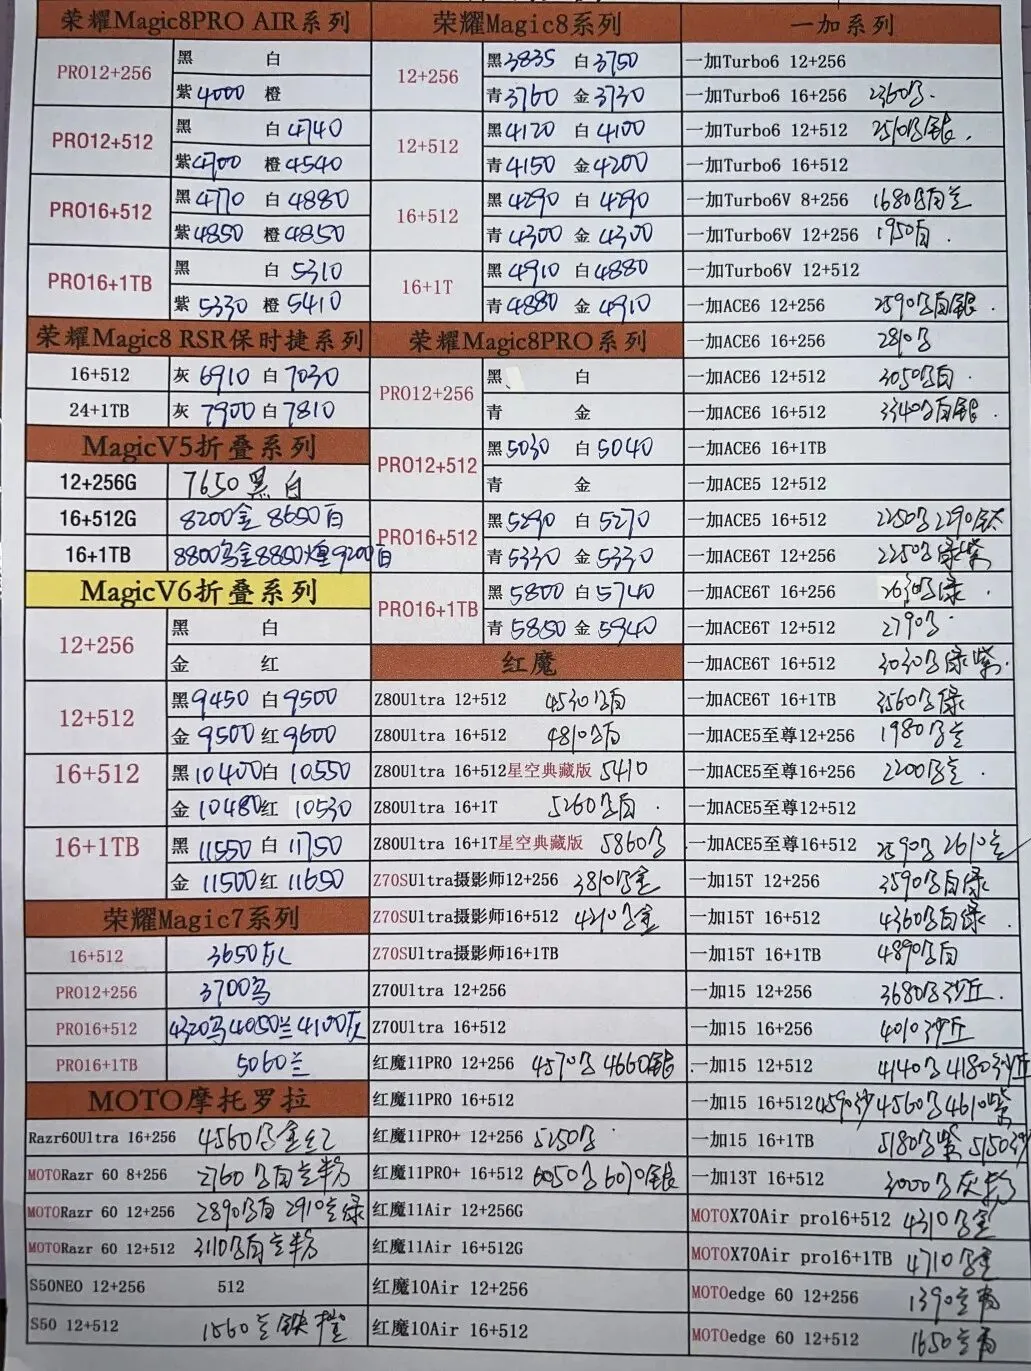 荣耀Magic8PRO AIR系列
PRO12+256
黑 白
紫4000 橙
PRO12+512
黑 白4740
紫4700 橙4540
PRO16+512
黑4770 白4880
紫4850 橙4850
PRO16+1TB
黑 白5310
紫5330 橙5410
荣耀Magic8 RSR保时捷系列
16+512 灰6910 白7030
24+1TB 灰7900 白7810
MagicV5折叠系列
12+256G 7650黑白
16+512G 8200金 8650白
16+1TB 8800乌金8850煌9200白
MagicV6折叠系列
12+256
黑 白
金 红
12+512
黑9450 白9500
金9500 红9600
16+512
黑10400 白10550
金10480 红10530
16+1TB
黑11550 白11750
金11500 红11650
荣耀Magic7系列
16+512 3650灰
PRO12+256 3700乌
PRO16+512 4320乌4050兰4100灰
PRO16+1TB 5060兰
MOTO摩托罗拉
Razr60Ultra 16+256 4560乌金红
MOTORazr 60 8+256 2760乌白兰粉
MOTORazr 60 12+256 2890乌白 2910兰绿
MOTORazr 60 12+512 3110乌白兰粉
S50NEO 12+256 512
S50 12+512 1560兰铁橙
荣耀Magic8系列
12+256
黑3835 白3750
青3760 金3730
12+512
黑4120 白4100
青4150 金4200
16+512
黑4290 白4290
青4300 金4300
16+1T
黑4910 白4880
青4880 金4910
荣耀Magic8PRO系列
PRO12+256
黑 白
青 金
PRO12+512
黑5030 白5040
青 金
PRO16+512
黑5290 白5270
青5330 金5330
PRO16+1TB
黑5800 白5740
青5850 金5940
红魔
Z80Ultra 12+512 4530乌白
Z80Ultra 16+512 4810乌白
Z80Ultra 16+512星空典藏版 5410
Z80Ultra 16+1T 5260乌白
Z80Ultra 16+1T星空典藏版 5860乌
Z70SUltra摄影师12+256 3810乌金
Z70SUltra摄影师16+512 4310乌金
Z70SUltra摄影师16+1TB
Z70Ultra 12+256
Z70Ultra 16+512
红魔11PRO 12+256 4570乌 4660银
红魔11PRO 16+512
红魔11PRO+ 12+256 5250乌
红魔11PRO+ 16+512 6050乌 6070银
红魔11Air 12+256G
红魔11Air 16+512G
红魔10Air 12+256
红魔10Air 16+512
一加系列
一加Turbo6 12+256
一加Turbo6 16+256 2360乌
一加Turbo6 12+512 2510乌银
一加Turbo6 16+512
一加Turbo6V 8+256 1680乌白兰
一加Turbo6V 12+256 1950白
一加Turbo6V 12+512
一加ACE6 12+256 2590乌白银
一加ACE6 16+256 2810乌
一加ACE6 12+512 3050乌白
一加ACE6 16+512 3340乌白银
一加ACE6 16+1TB
一加ACE5 12+512
一加ACE5 16+512 2250乌2290钛
一加ACE6T 12+256 2250乌绿紫
一加ACE6T 16+256 2630乌绿
一加ACE6T 12+512 2790乌
一加ACE6T 16+512 3030乌绿紫
一加ACE6T 16+1TB 3560乌绿
一加ACE5至尊12+256 1980乌兰
一加ACE5至尊16+256 2200乌兰
一加ACE5至尊12+512
一加ACE5至尊16+512 2590乌 2610兰
一加15T 12+256 3590乌白绿
一加15T 16+512 4360乌白绿
一加15T 16+1TB 4890乌白
一加15 12+256 3680乌沙丘
一加15 16+256 4010沙丘
一加15 12+512 4140乌 4180沙丘
一加15 16+512 4590沙4560乌4610紫
一加15 16+1TB 5180乌紫 5150沙
一加13T 16+512 3000乌灰粉
MOTOX70Air pro16+512 4310乌金
MOTOX70Air pro16+1TB 4710乌金
MOTOedge 60 12+256 1390兰
MOTOedge 60 12+512 1650兰